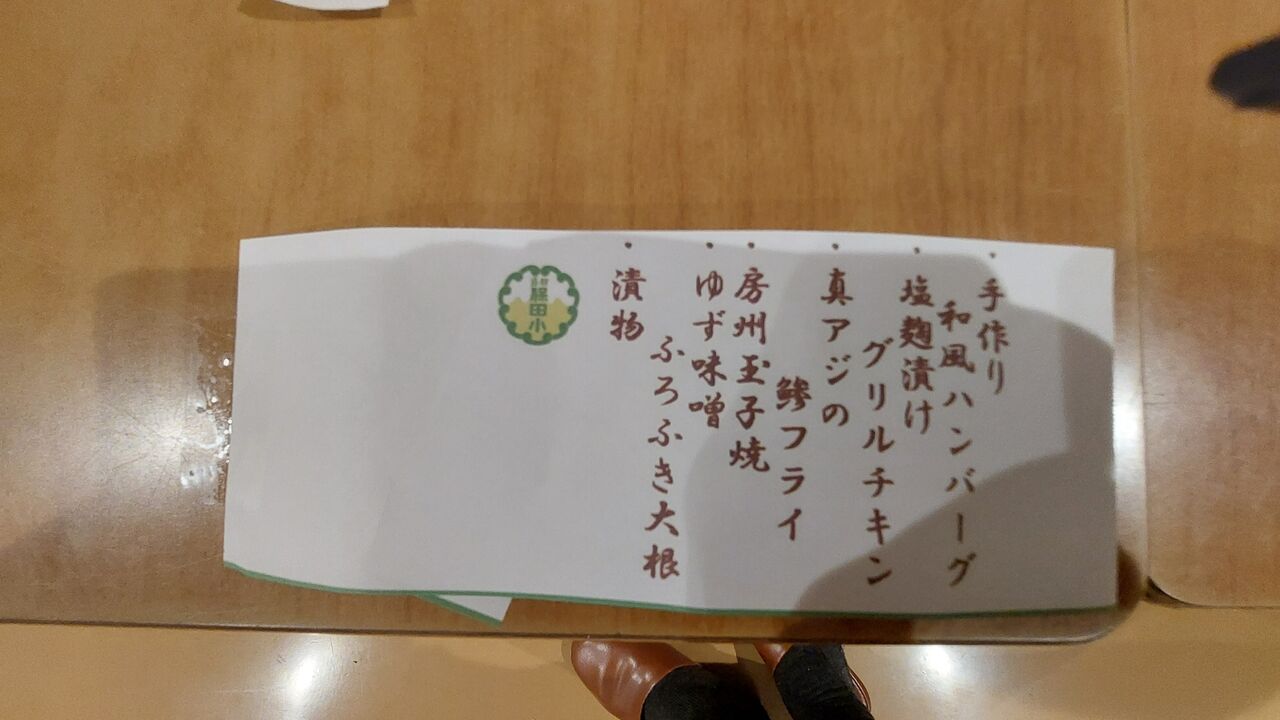 ・手作り
和風ハンバーグ
・塩麹漬け
グリルチキン
・真アジの
鯵フライ
・房州玉子焼
・ゆず味噌
ふろふき大根
・漬物
保田小